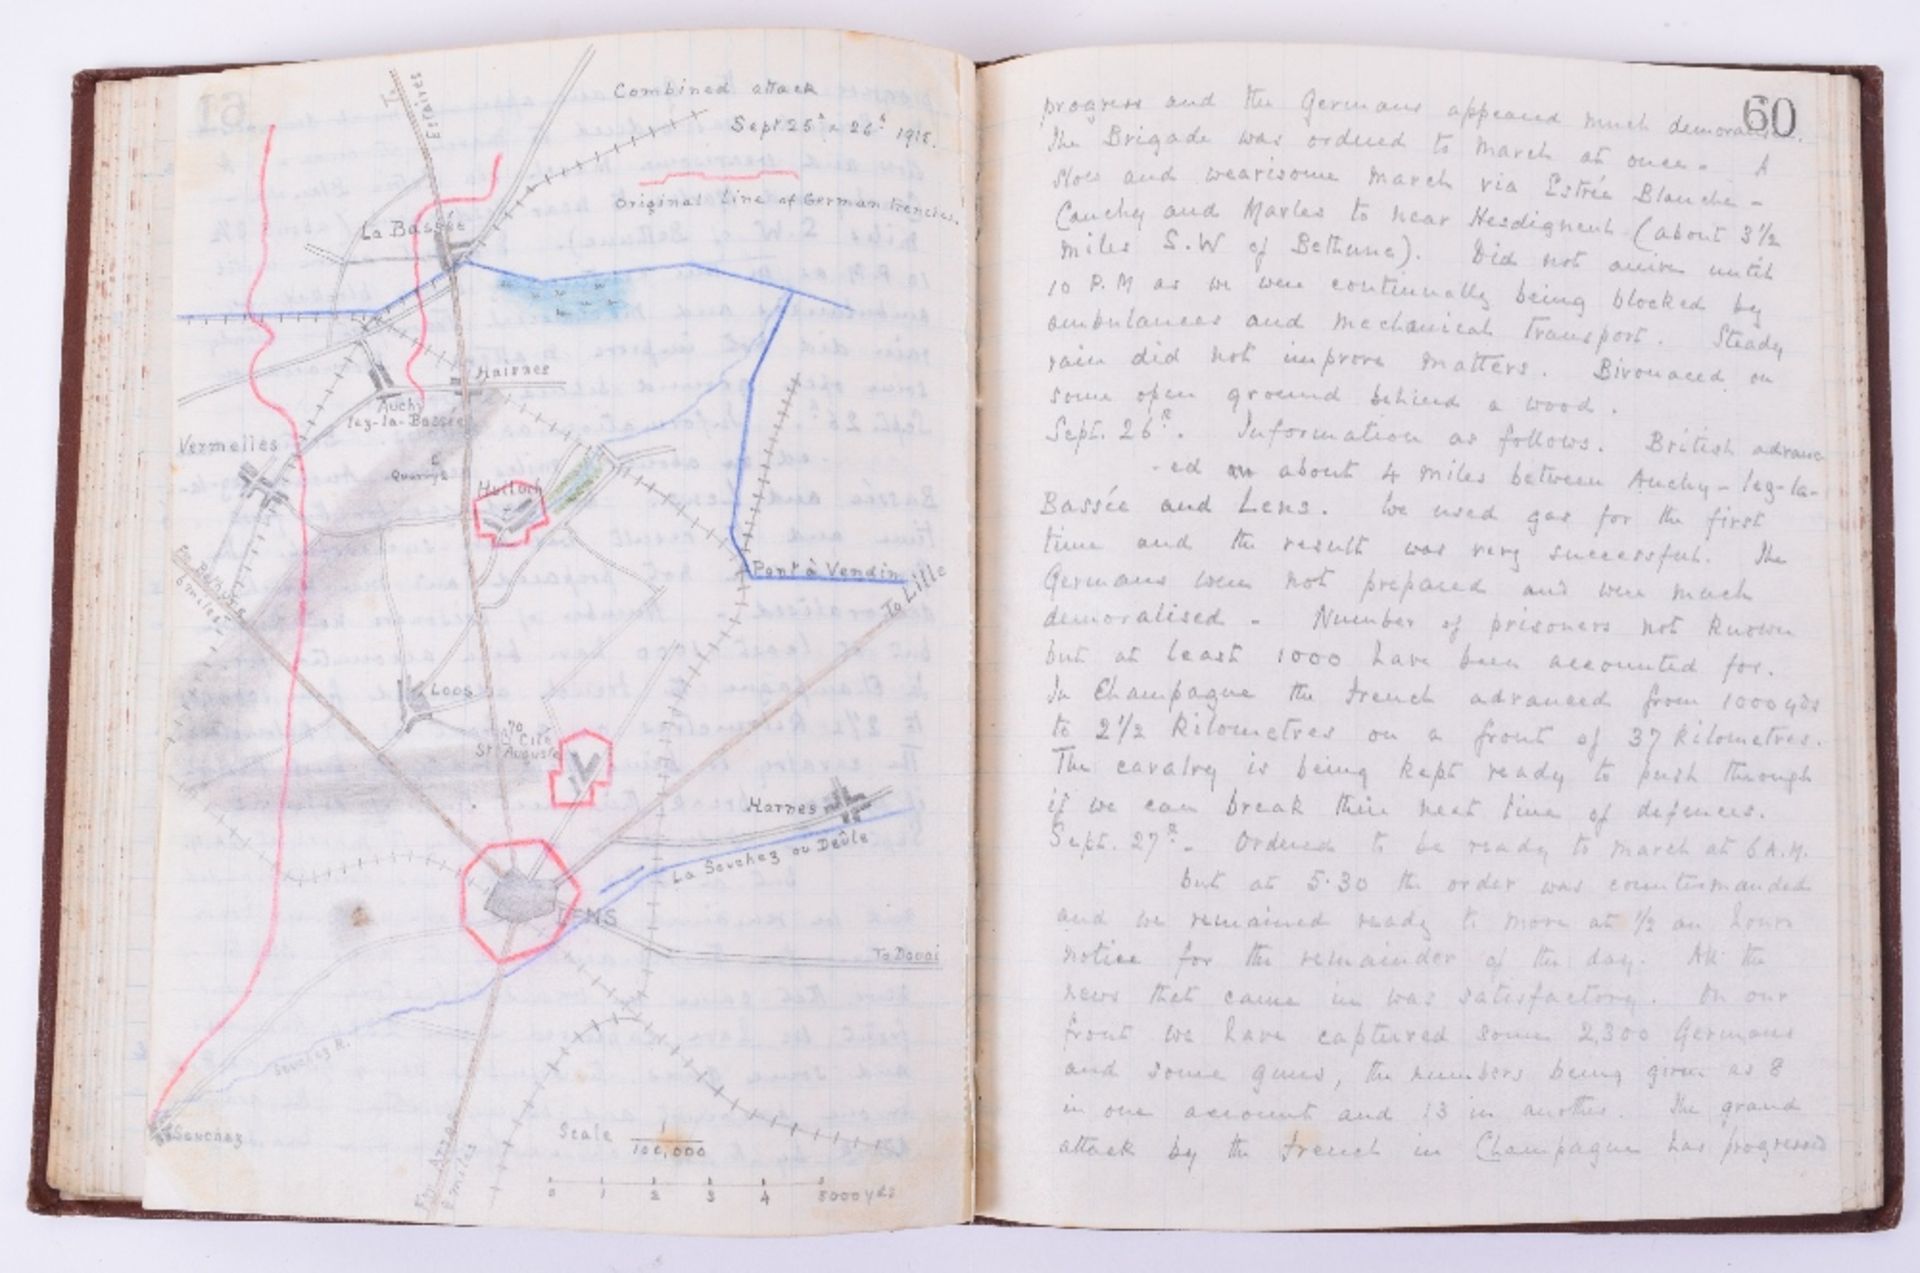 Combined attack
Sept 25th & 26th 1915.
Original Line of German trenches.
To Estaires
La Bassée
Hairnes
Auchy
lez-la-Bassée
Vermelles
Quarrys
Hulluch
Pont à Vendin
To Lille
Fm Bethune
6 miles
Loos
Cité
St Auguste
Harnes
La Souchez ou Deûle
LENS
To Douai
Souchez R.
Souchez
Fm Arras
8 miles
Scale 1
100,000
0 1 2 3 4 5000 yds
61
60
progress and the Germans appeared much
The Brigade was ordered to march at once - A
slow and wearisome march via Estrée Blanche -
Cauchy and Marles to near Hesdigneul (about 3½
miles S.W of Bethune). Did not arrive until
10 P.M as we were continually being blocked by
ambulances and mechanical Transport. Steady
rain did not improve matters. Bivouaced on
some open ground behind a wood.
Sept. 26th. Information as follows. British advanc
-ed on about 4 miles between Auchy-lez-la-
Bassée and Lens. We used gas for the first
time and the result was very successful. The
Germans were not prepared and were much
demoralised - Number of prisoners not known
but at least 1000 have been accounted for.
In Champagne the French advanced from 1000 yds
to 2½ kilometres on a front of 37 kilometres.
The cavalry is being kept ready to push through
if we can break their next line of defences.
Sept. 27th - Ordered to be ready to march at 6 A.M.
but at 5.30 the order was countermanded
and we remained ready to move at ½ an hours
notice for the remainder of the day. All the
news that came in was satisfactory. On our
front we have captured some 2,300 Germans
and some guns, the numbers being given as 8
in one account and 13 in another. The grand
attack by the French in Champagne has progressed